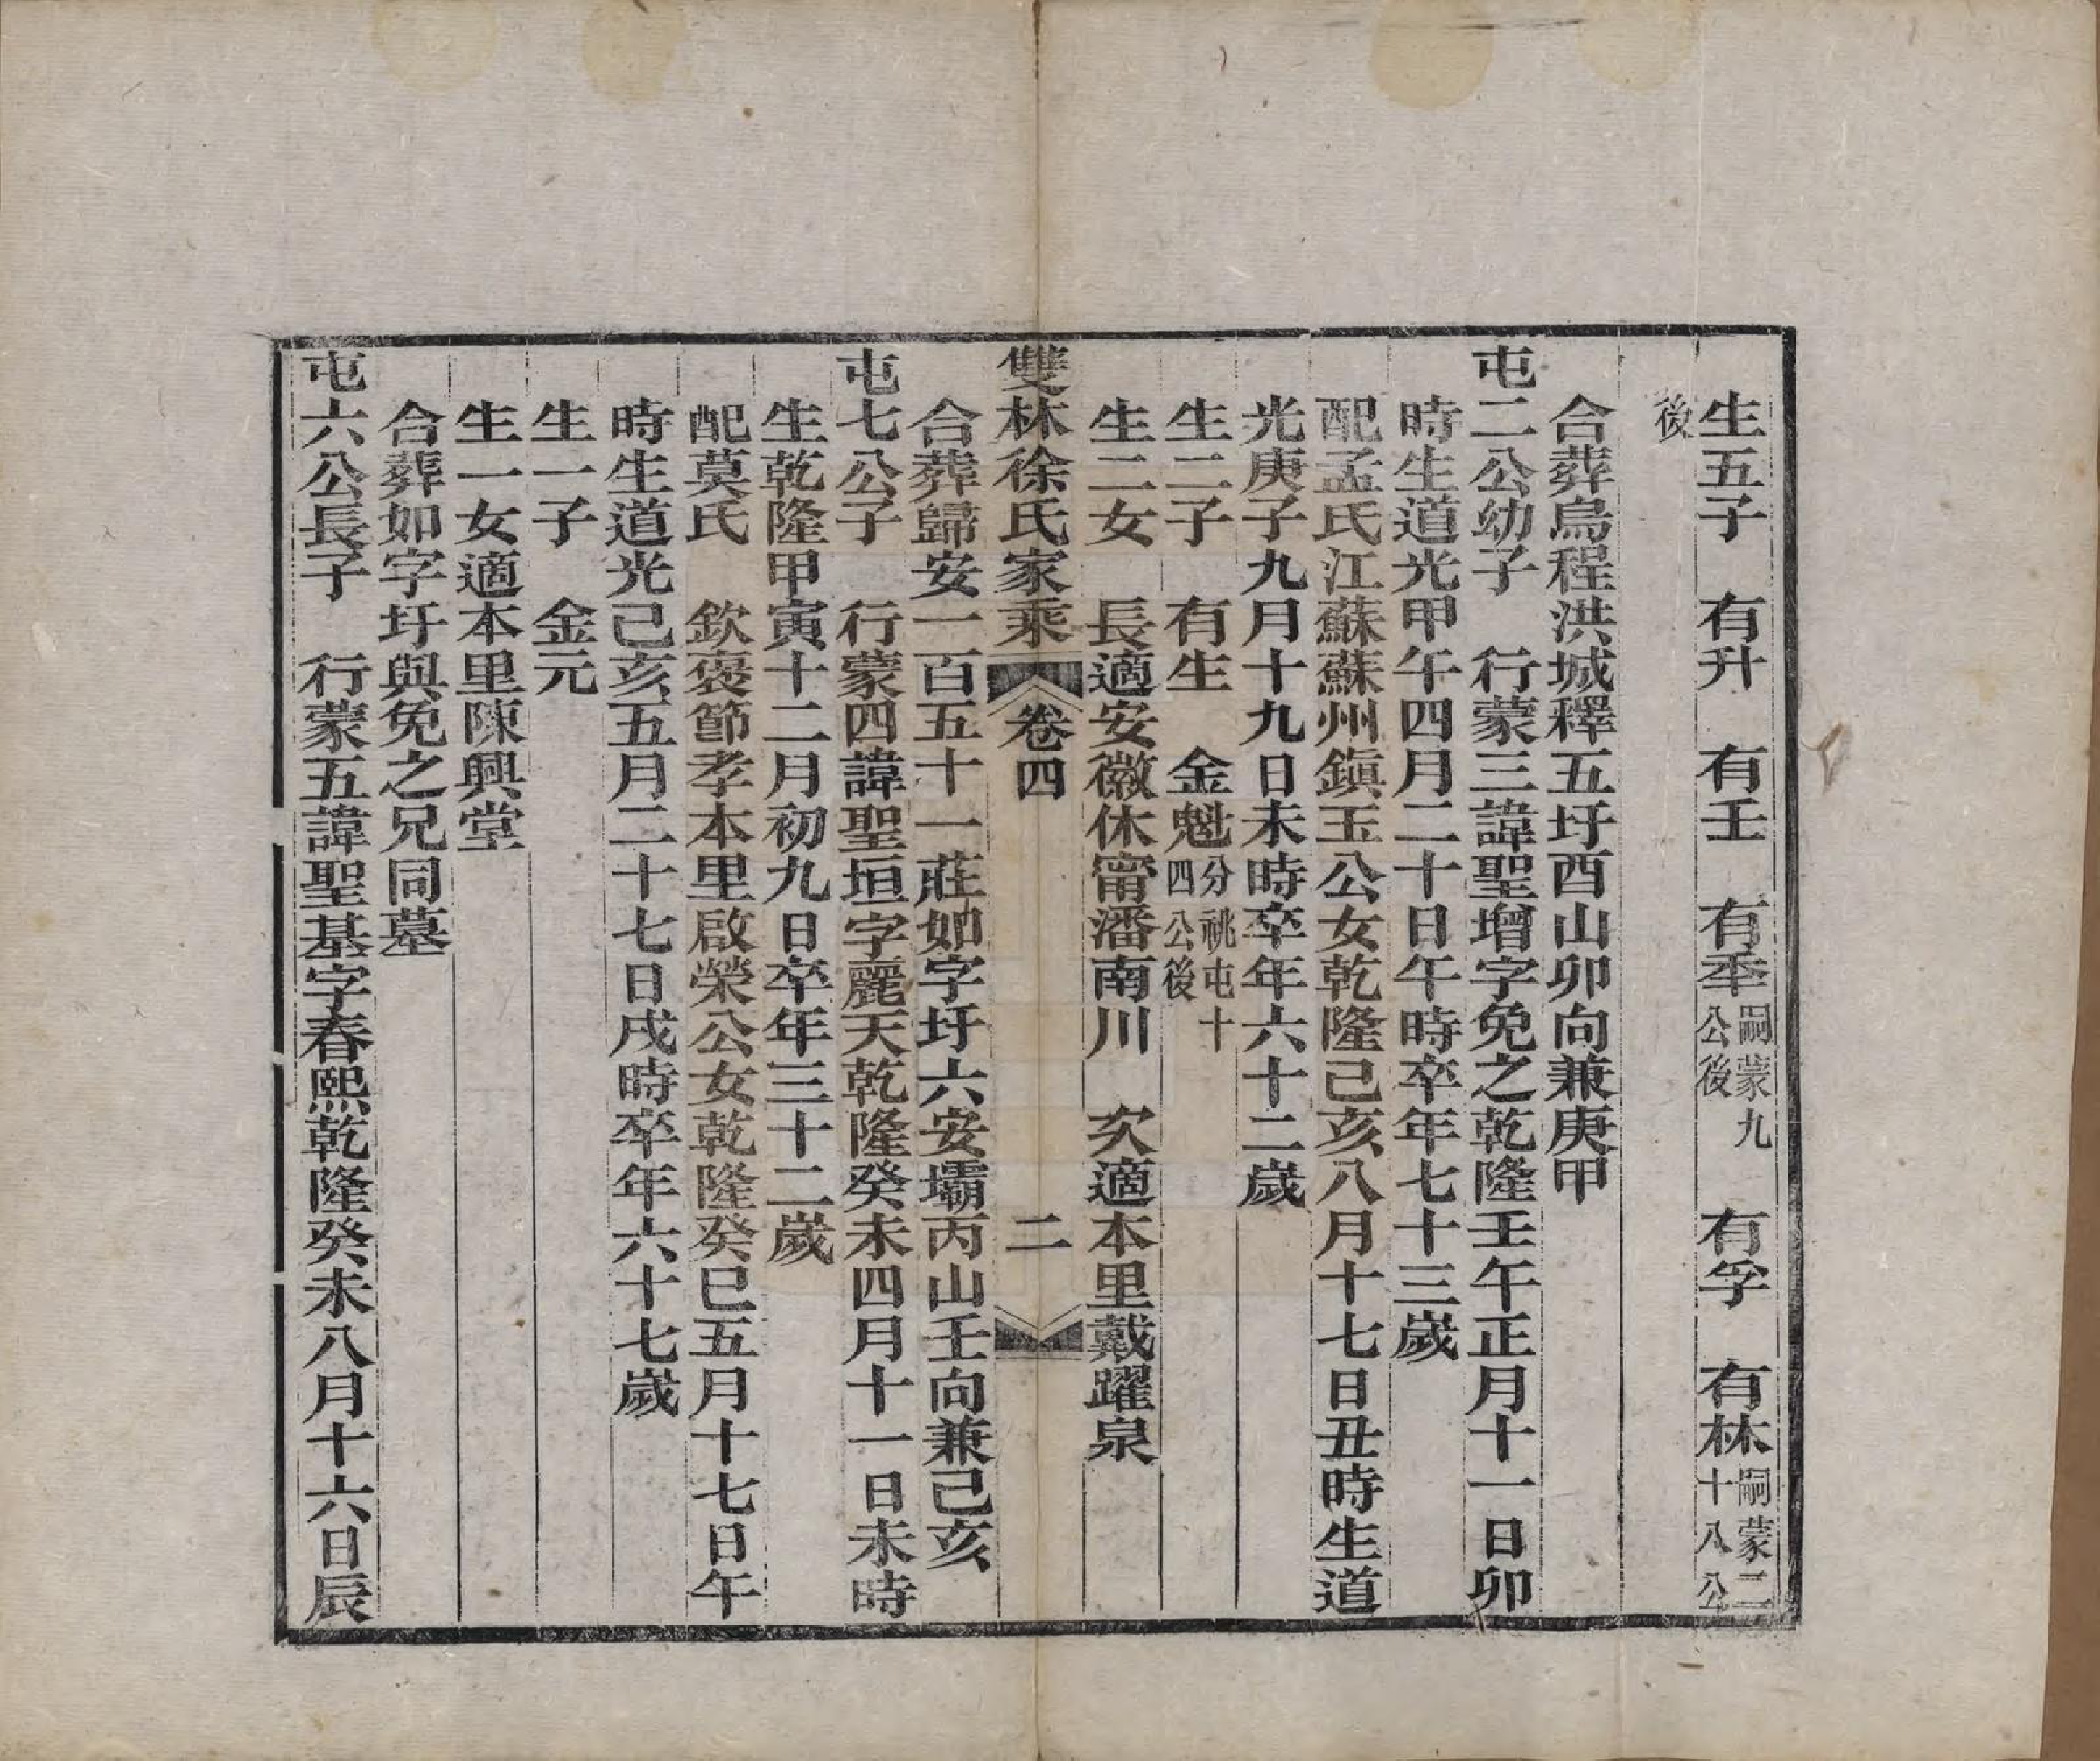 生五子　有升　有壬　有秊嗣蒙九公後　有孚　有林嗣蒙二十八公
後
合葬烏程洪城釋五圩酉山卯向兼庚甲
屯二公幼子　行蒙三諱聖增字免之乾隆壬午正月十一日卯
時生道光甲午四月二十日午時卒年七十三歲
配孟氏江蘇蘇州鎭玉公女乾隆己亥八月十七日丑時生道
光庚子九月十九日未時卒年六十二歲
生二子　有生　金魁分祧屯十四公後
生二女　長適安徽休甯潘南川　次適本里戴躍泉
雙林徐氏家乘　卷四　二
合葬歸安一百五十一莊如字圩六安壩丙山壬向兼己亥
屯七公子　行蒙四諱聖垣字麗天乾隆癸未四月十一日未時
生乾隆甲寅十二月初九日卒年三十二歲
配莫氏　欽褒節孝本里啟榮公女乾隆癸巳五月十七日午
時生道光己亥五月二十七日戌時卒年六十七歲
生一子　金元
生一女適本里陳興堂
合葬如字圩與免之兄同墓
屯六公長子　行蒙五諱聖基字春熙乾隆癸未八月十六日辰